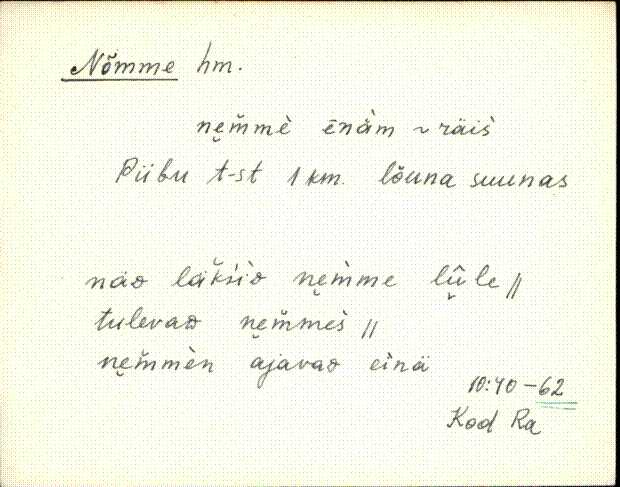 Nõmme hm.
ne̮m̆mè ēnàm ~ räis̀
Piibu t-st 1 km. lõuna suunas
näᴅ läks̀iᴅ ne̮m̀me lū̮le //
tulevaᴅ ne̮m̆mès̀ //
ne̮m̆mèn ajavaᴅ einä
10:40-62
Kod Ra